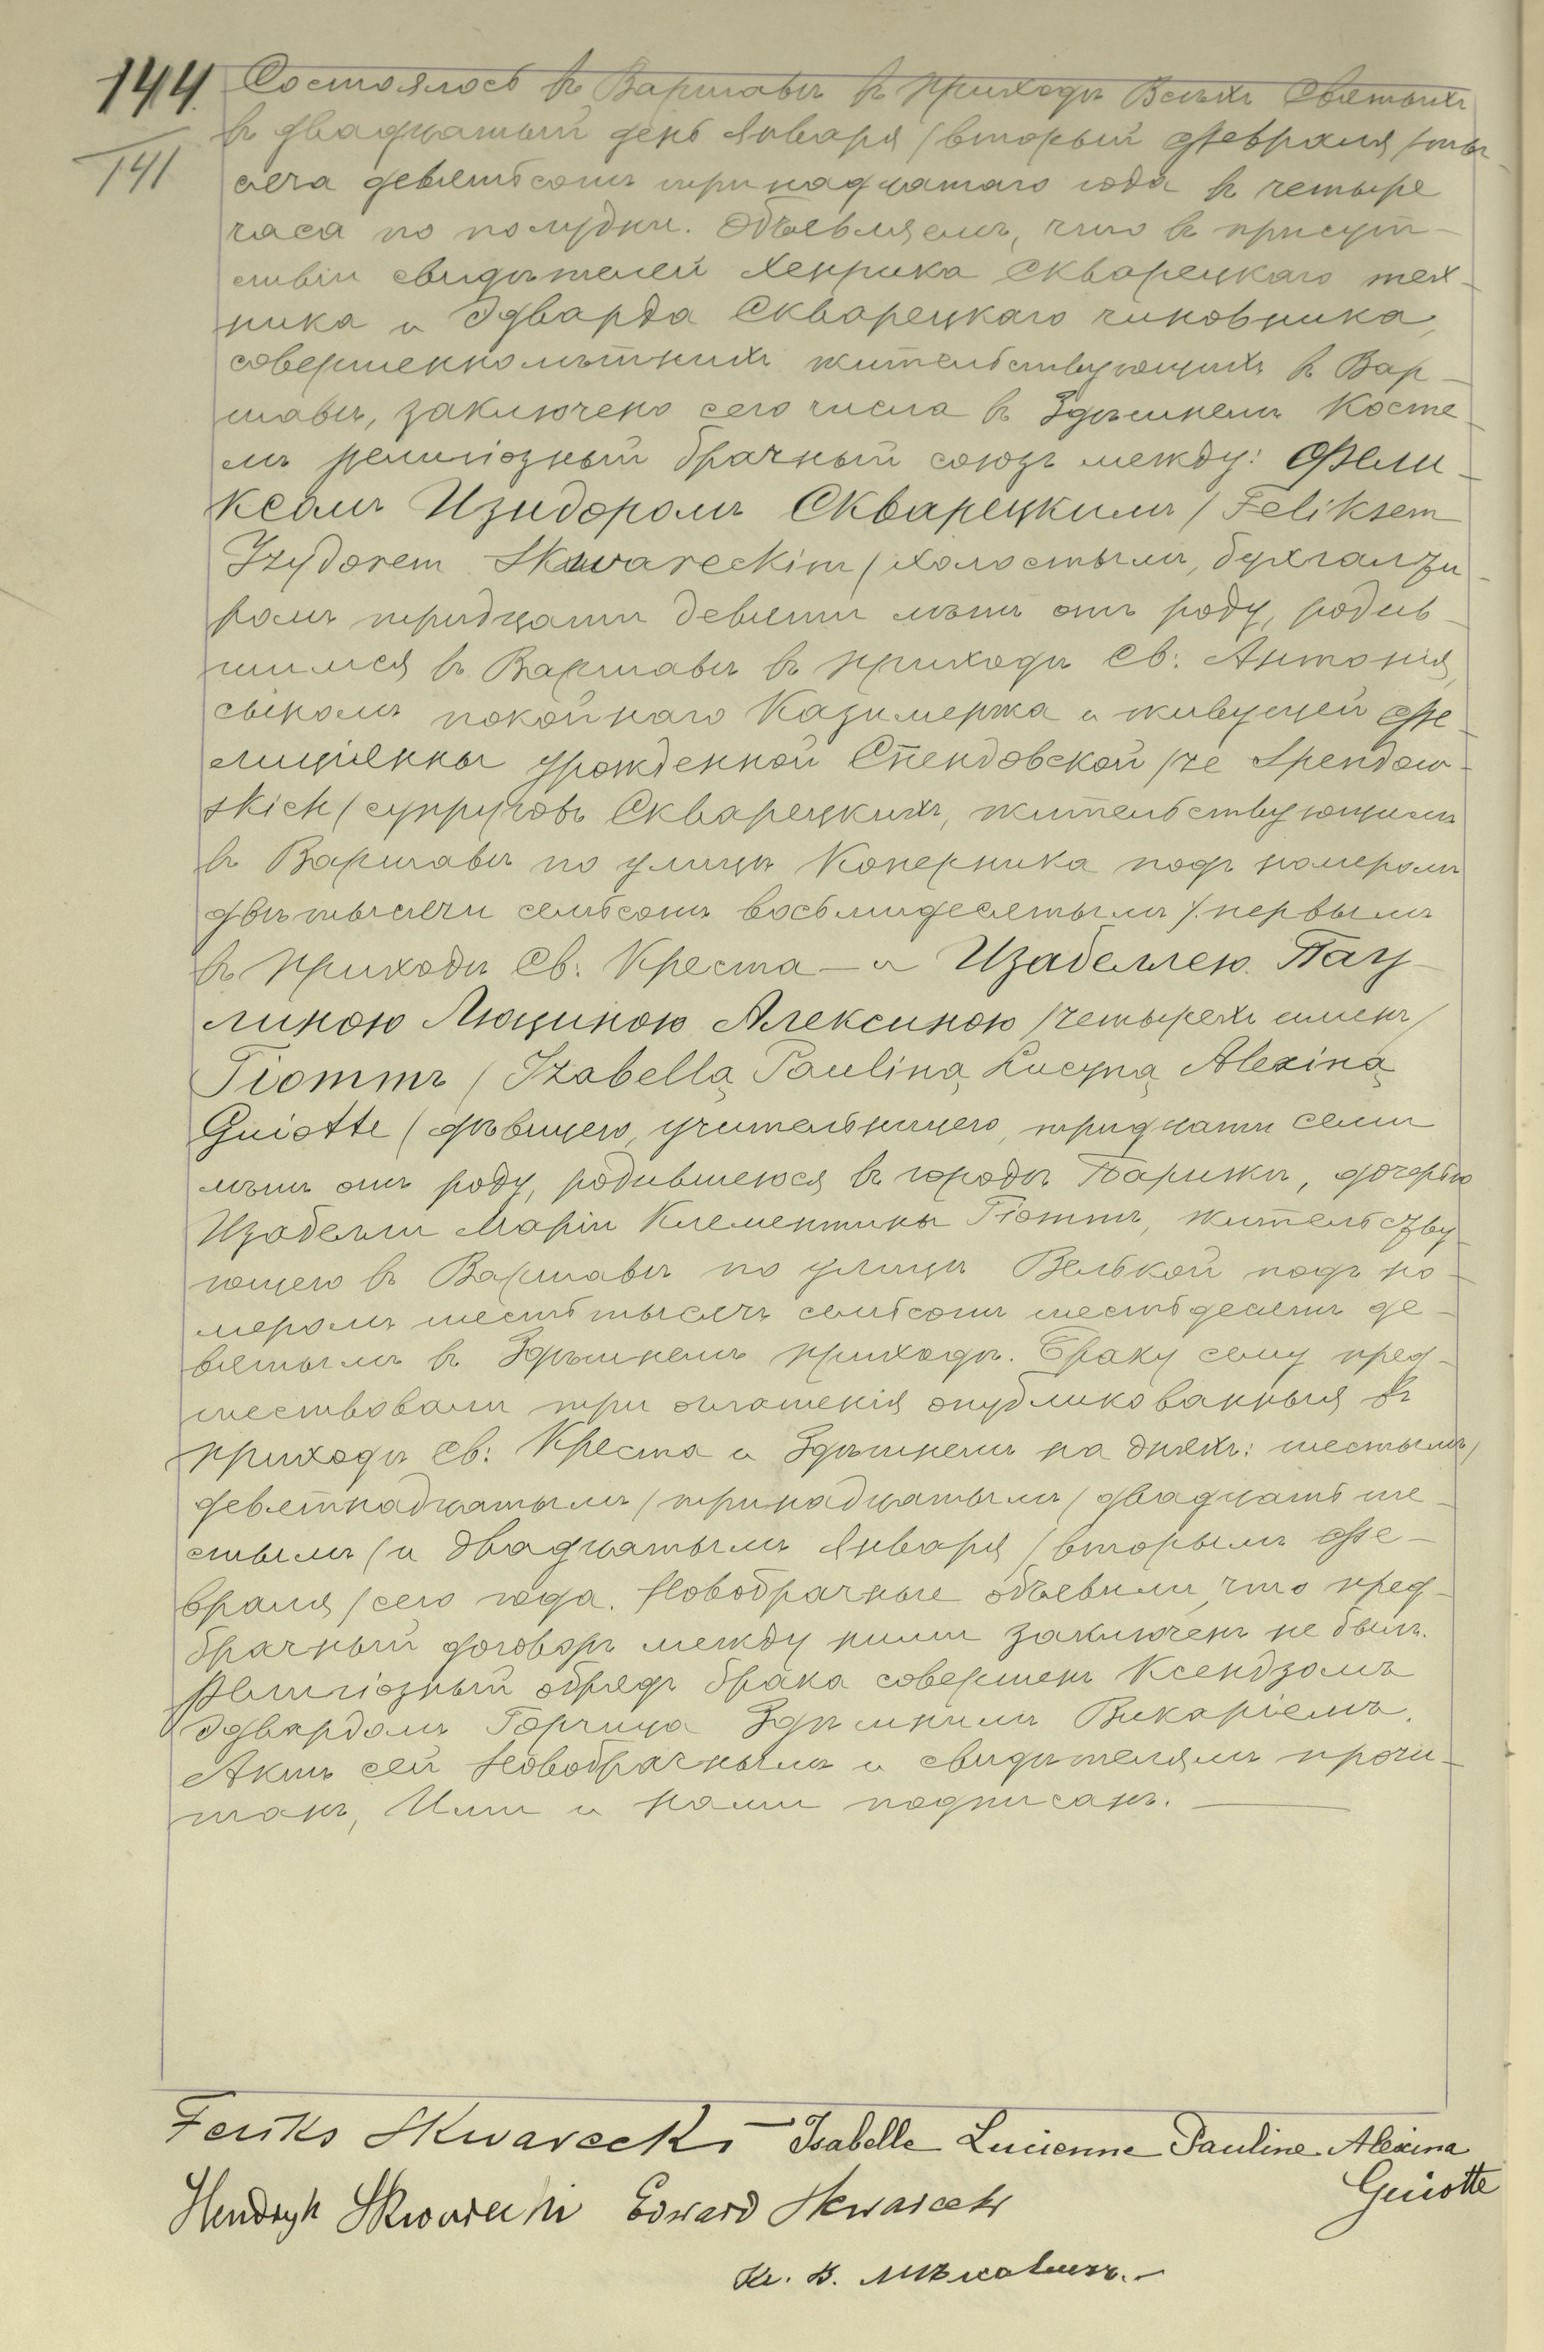 144.
141
Состоялось въ Варшавѣ въ приходѣ Всѣхъ Святыхъ
въ двадцатый день Января /второй Февраля/ ты-
сяча девятьсотъ тринадцатаго года въ четыре
часа по полудни. Объявляемъ, что въ присут-
ствіи свидѣтелей Хенрика Скварецкаго тех-
ника и Эдварда Скварецкаго чиновника,
совершеннолѣтнихъ жительствующихъ въ Вар-
шавѣ, заключено сего числа въ Здѣшнемъ Косте-
лѣ религіозный брачный союзъ между: Фели-
ксомъ Изидоромъ Скварецкимъ /Feliksem
Izydorem Skwareckim/ холостымъ, бухгалте-
ромъ тридцати девяти лѣтъ отъ роду, родив-
шимся въ Варшавѣ въ приходѣ Св: Антонія,
сыномъ покойнаго Казимержа и живущей Фе-
лиціянны урожденной Спендовской /че Spendow-
skich/ супруговъ Скварецкихъ, жительствующимъ
въ Варшавѣ по улицѣ Коперника подъ номеромъ
двѣ тысячи семьсотъ восьмидесятымъ /. первымъ
въ приходѣ Св: Креста — и Изабеллею Пау-
линою Люциною Алексиною /четырехъ именъ/
Гіоттъ /Izabellą Pauliną Lucyną Alexiną
Guiotte/ дѣвицею, учительницею, тридцати семи
лѣтъ отъ роду, родившеюся въ городѣ Парижѣ, дочерью
Изабелли Маріи Клементины Гіоттъ, жительству-
ющею въ Варшавѣ по улицѣ Велькой подъ но-
меромъ шесть тысячъ семьсотъ шестьдесятъ де-
вятымъ въ Здѣшнемъ приходѣ. Браку сему пред-
шествовали три оглашенія опубликованныя въ
приходѣ Св: Креста и Здѣшнемъ на дняхъ: шестымъ/
девятнадцатымъ/ тринадцатымъ/ двадцать ше-
стымъ/ и двадцатымъ Января /вторымъ Фе-
враля/ сего года. Новобрачные объявили, что пред-
брачный договоръ между ними заключенъ не былъ.
Религіозный обрядъ брака совершенъ Ксендзомъ
Эдвардомъ Горчица Здѣшнимъ Викаріемъ.
Актъ сей Новобрачнымъ и свидѣтелямъ прочи-
танъ, Ими и нами подписанъ.
Feliks Skwarecki — Isabelle Lucienne Pauline Alexina
Guiotte
Hendryk Skwarecki Edward Skwarecki
Кс. В.